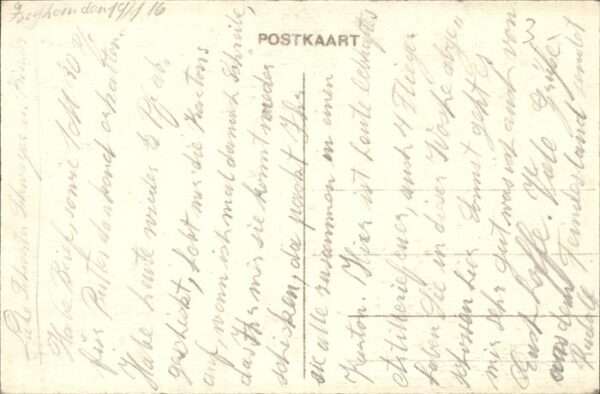 den 19/1 16
POSTKAART
Liebe Schwester Schwager u.
Habe Brief, sowie 1 M 30 Pf
für dankend erhalten.
Habe heute wieder 3 ab
geschickt, hebt mir die Kartons
auf, wenn ich mal danach schreibe,
das Ihr mir sie könnt wieder
schicken, da packt Ihr
sie alle zusammen in einen
Karton. Hier ist heute lebhaftes
Artilleriefeuer, auch 4 Flieger
haben Sie in dieser Woche abge
schossen hier. Sonst geht es
mir sehr gut, was ich auch von
Euch hoffe. Viele Grüße
aus dem Feindesland sendet